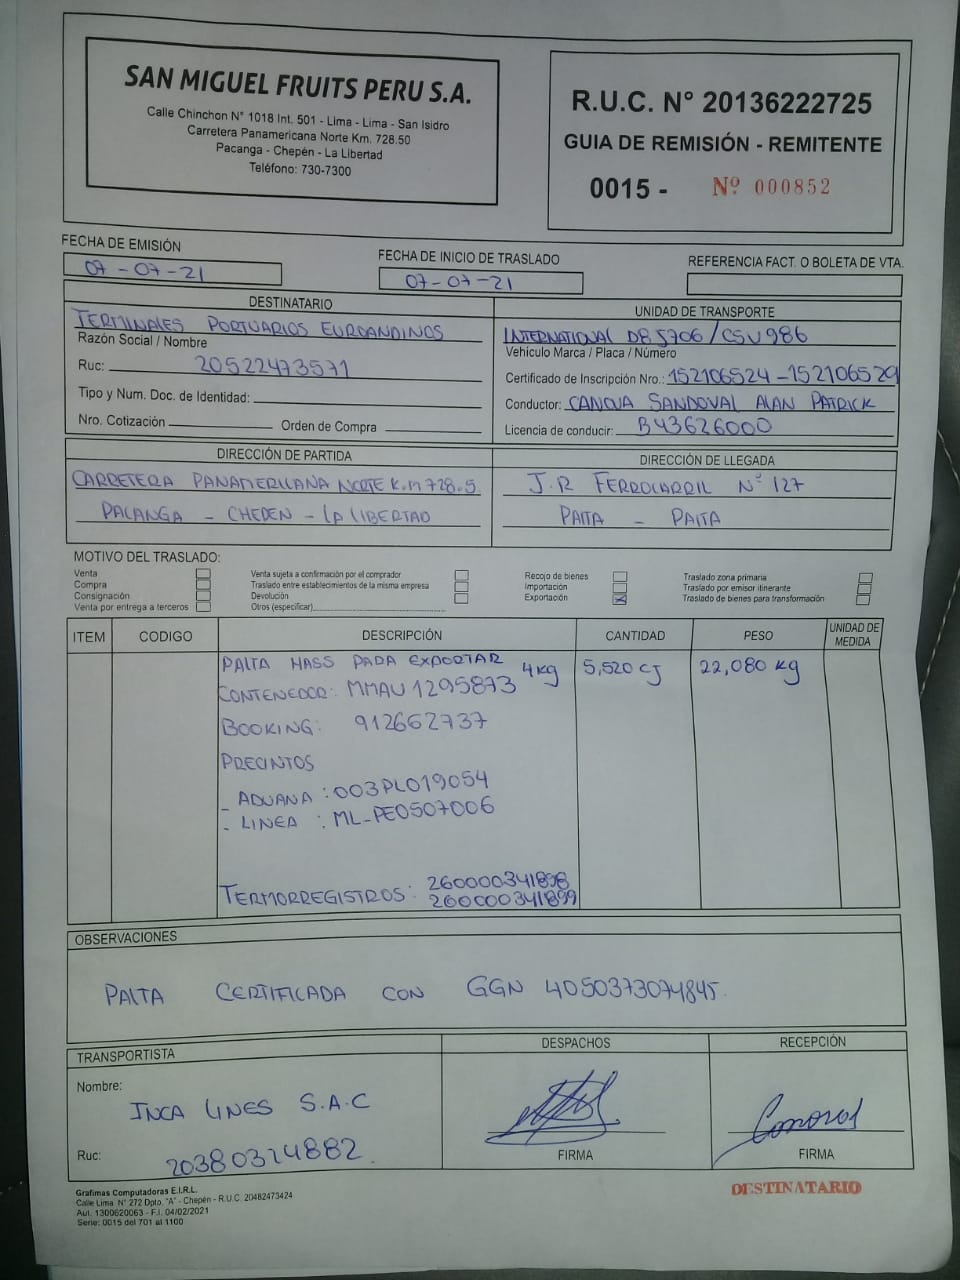 SAN MIGUEL FRUITS PERU S.A.
Calle Chinchon N° 1018 Int. 501 - Lima - Lima - San Isidro
Carretera Panamericana Norte Km. 728.50
Pacanga - Chepén - La Libertad
Teléfono: 730-7300
R.U.C. N° 20136222725
GUIA DE REMISIÓN - REMITENTE
0015 - Nº 000852
FECHA DE EMISIÓN
07-07-21
FECHA DE INICIO DE TRASLADO
07-07-21
REFERENCIA FACT. O BOLETA DE VTA.
DESTINATARIO
TERMINALES PORTUARIOS EUROANDINOS
Razón Social / Nombre
Ruc: 20522473571
Tipo y Num. Doc. de Identidad:
Nro. Cotización Orden de Compra
UNIDAD DE TRANSPORTE
INTERNATIONAL D8J706/CSU986
Vehículo Marca / Placa / Número
Certificado de Inscripción Nro.: 152106524-152106529
Conductor: CANOVA SANDOVAL ALAN PATRICK
Licencia de conducir: B43626000
DIRECCIÓN DE PARTIDA
CARRETERA PANAMERICANA NORTE K.M 728.5
PACANGA - CHEPEN - LA LIBERTAD
DIRECCIÓN DE LLEGADA
J.R FERROCARRIL N° 127
PAITA - PAITA
MOTIVO DEL TRASLADO:
Venta
Compra
Consignación
Venta por entrega a terceros
Venta sujeta a confirmación por el comprador
Traslado entre establecimientos de la misma empresa
Devolución
Otros (especificar)
Recojo de bienes
Importación
Exportación X
Traslado zona primaria
Traslado por emisor itinerante
Traslado de bienes para transformación
ITEM CODIGO DESCRIPCIÓN CANTIDAD PESO UNIDAD DE MEDIDA
PALTA HASS PARA EXPORTAR 4kg 5,520 CJ 22,080 kg
CONTENEDOR: MMAU1295873
BOOKING: 912662737
PRECINTOS
- ADUANA: 003PL019054
- LINEA: ML-PE0507006
TERMORREGISTROS: 260000341898
260000341899
OBSERVACIONES
PALTA CERTIFICADA CON GGN 4050373074845.
TRANSPORTISTA
Nombre:
INCA LINES S.A.C
Ruc: 20380324882
DESPACHOS
FIRMA
RECEPCIÓN
FIRMA
Grafimas Computadoras E.I.R.L.
Calle Lima N° 272 Dpto. "A" - Chepén - R.U.C. 20482473424
Aut. 1300620063 - F.I. 04/02/2021
Serie: 0015 del 701 al 1100
DESTINATARIO